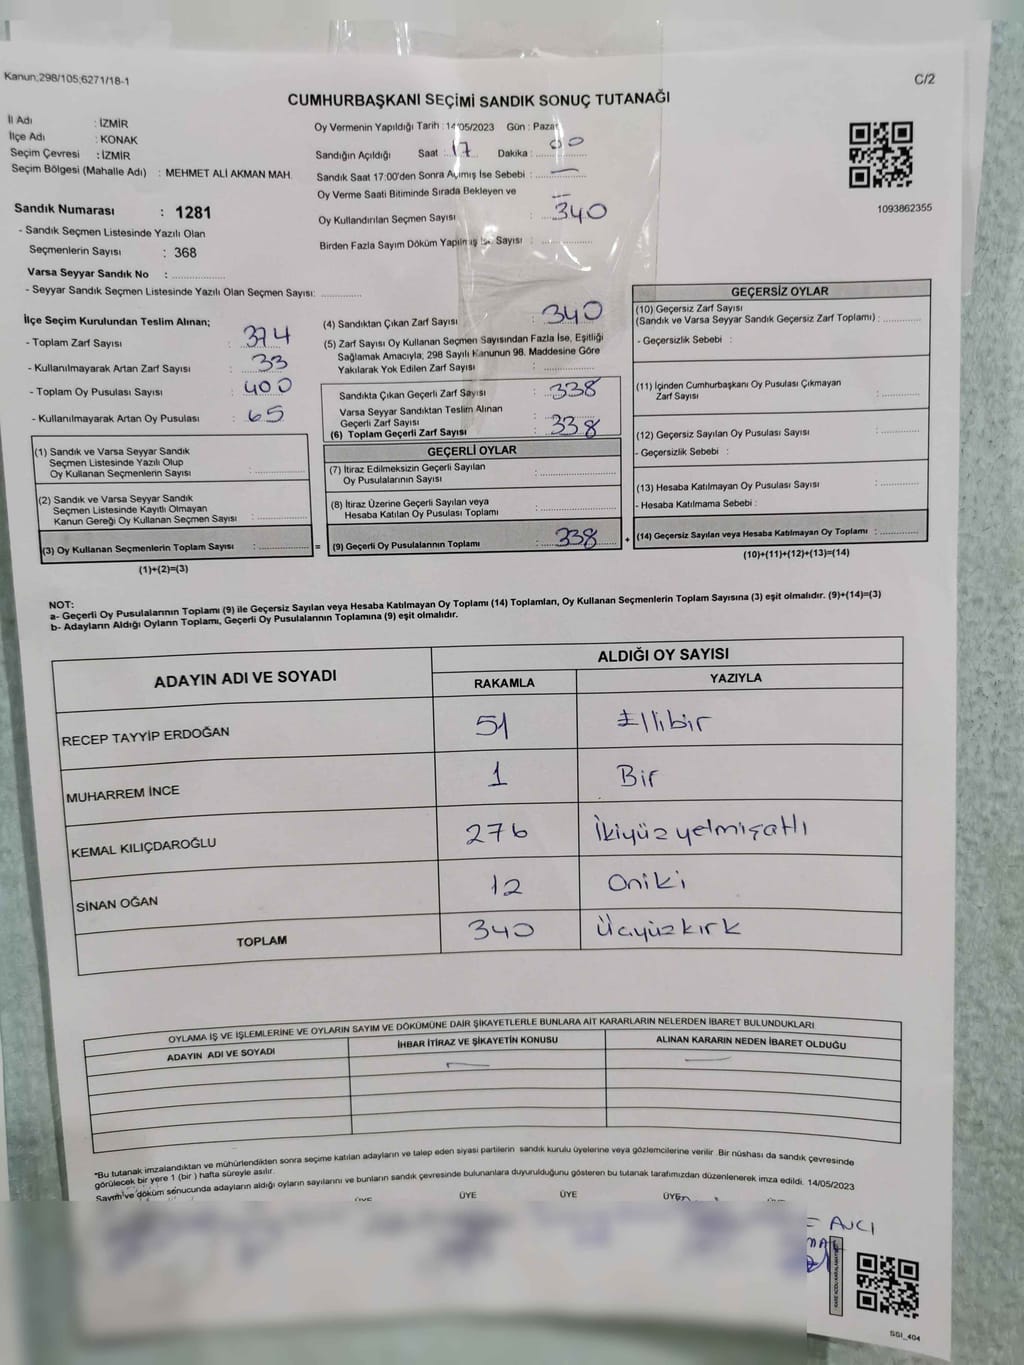 Kanun;298/105;6271/18-1
C/2
CUMHURBAŞKANI SEÇİMİ SANDIK SONUÇ TUTANAĞI
İl Adı : İZMİR
İlçe Adı : KONAK
Seçim Çevresi : İZMİR
Seçim Bölgesi (Mahalle Adı) : MEHMET ALİ AKMAN MAH.
Sandık Numarası : 1281
- Sandık Seçmen Listesinde Yazılı Olan
Seçmenlerin Sayısı : 368
Varsa Seyyar Sandık No : ..............
- Seyyar Sandık Seçmen Listesinde Yazılı Olan Seçmen Sayısı: ............
Oy Vermenin Yapıldığı Tarih : 14/05/2023 Gün : Pazar
Sandığın Açıldığı Saat : 17 Dakika : 00
Sandık Saat 17:00'den Sonra Açılmış İse Sebebi : —
Oy Verme Saati Bitiminde Sırada Bekleyen ve
Oy Kullandırılan Seçmen Sayısı : 340
Birden Fazla Sayım Döküm Yapılmış İse Sayısı : ..............
1093862355
İlçe Seçim Kurulundan Teslim Alınan;
- Toplam Zarf Sayısı : 374
- Kullanılmayarak Artan Zarf Sayısı : 33
- Toplam Oy Pusulası Sayısı : 400
- Kullanılmayarak Artan Oy Pusulası : 65
(1) Sandık ve Varsa Seyyar Sandık
Seçmen Listesinde Yazılı Olup
Oy Kullanan Seçmenlerin Sayısı : ..............
(2) Sandık ve Varsa Seyyar Sandık
Seçmen Listesinde Kayıtlı Olmayan
Kanun Gereği Oy Kullanan Seçmen Sayısı : ..............
(3) Oy Kullanan Seçmenlerin Toplam Sayısı : ..............
(1)+(2)=(3)
(4) Sandıktan Çıkan Zarf Sayısı : 340
(5) Zarf Sayısı Oy Kullanan Seçmen Sayısından Fazla İse, Eşitliği
Sağlamak Amacıyla, 298 Sayılı Kanunun 98. Maddesine Göre
Yakılarak Yok Edilen Zarf Sayısı : ..............
Sandıkta Çıkan Geçerli Zarf Sayısı : 338
Varsa Seyyar Sandıktan Teslim Alınan
Geçerli Zarf Sayısı : ..............
(6) Toplam Geçerli Zarf Sayısı : 338
GEÇERLİ OYLAR
(7) İtiraz Edilmeksizin Geçerli Sayılan
Oy Pusulalarının Sayısı : ..............
(8) İtiraz Üzerine Geçerli Sayılan veya
Hesaba Katılan Oy Pusulası Toplamı : ..............
= (9) Geçerli Oy Pusulalarının Toplamı : 338
GEÇERSİZ OYLAR
(10) Geçersiz Zarf Sayısı
(Sandık ve Varsa Seyyar Sandık Geçersiz Zarf Toplamı) : ............
- Geçersizlik Sebebi :
(11) İçinden Cumhurbaşkanı Oy Pusulası Çıkmayan
Zarf Sayısı : ............
(12) Geçersiz Sayılan Oy Pusulası Sayısı : ............
- Geçersizlik Sebebi :
(13) Hesaba Katılmayan Oy Pusulası Sayısı : ............
- Hesaba Katılmama Sebebi :
+ (14) Geçersiz Sayılan veya Hesaba Katılmayan Oy Toplamı : ............
(10)+(11)+(12)+(13)=(14)
NOT:
a- Geçerli Oy Pusulalarının Toplamı (9) ile Geçersiz Sayılan veya Hesaba Katılmayan Oy Toplamı (14) Toplamları, Oy Kullanan Seçmenlerin Toplam Sayısına (3) eşit olmalıdır. (9)+(14)=(3)
b- Adayların Aldığı Oyların Toplamı, Geçerli Oy Pusulalarının Toplamına (9) eşit olmalıdır.
ADAYIN ADI VE SOYADI
ALDIĞI OY SAYISI
RAKAMLA YAZIYLA
RECEP TAYYİP ERDOĞAN 51 Ellibir
MUHARREM İNCE 1 Bir
KEMAL KILIÇDAROĞLU 276 İkiyüzyetmişaltı
SİNAN OĞAN 12 Oniki
TOPLAM 340 Üçyüzkırk
OYLAMA İŞ VE İŞLEMLERİNE VE OYLARIN SAYIM VE DÖKÜMÜNE DAİR ŞİKAYETLERLE BUNLARA AİT KARARLARIN NELERDEN İBARET BULUNDUKLARI
ADAYIN ADI VE SOYADI İHBAR İTİRAZ VE ŞİKAYETİN KONUSU ALINAN KARARIN NEDEN İBARET OLDUĞU
— —
*Bu tutanak imzalandıktan ve mühürlendikten sonra seçime katılan adayların ve talep eden siyasi partilerin sandık kurulu üyelerine veya gözlemcilerine verilir. Bir nüshası da sandık çevresinde
görülecek bir yere 1 (bir ) hafta süreyle asılır.
Sayım ve döküm sonucunda adayların aldığı oyların sayılarını ve bunların sandık çevresinde bulunanlara duyurulduğunu gösteren bu tutanak tarafımızdan düzenlenerek imza edildi. 14/05/2023
ÜYE ÜYE ÜYE ÜYE
AVCI
SGI_404